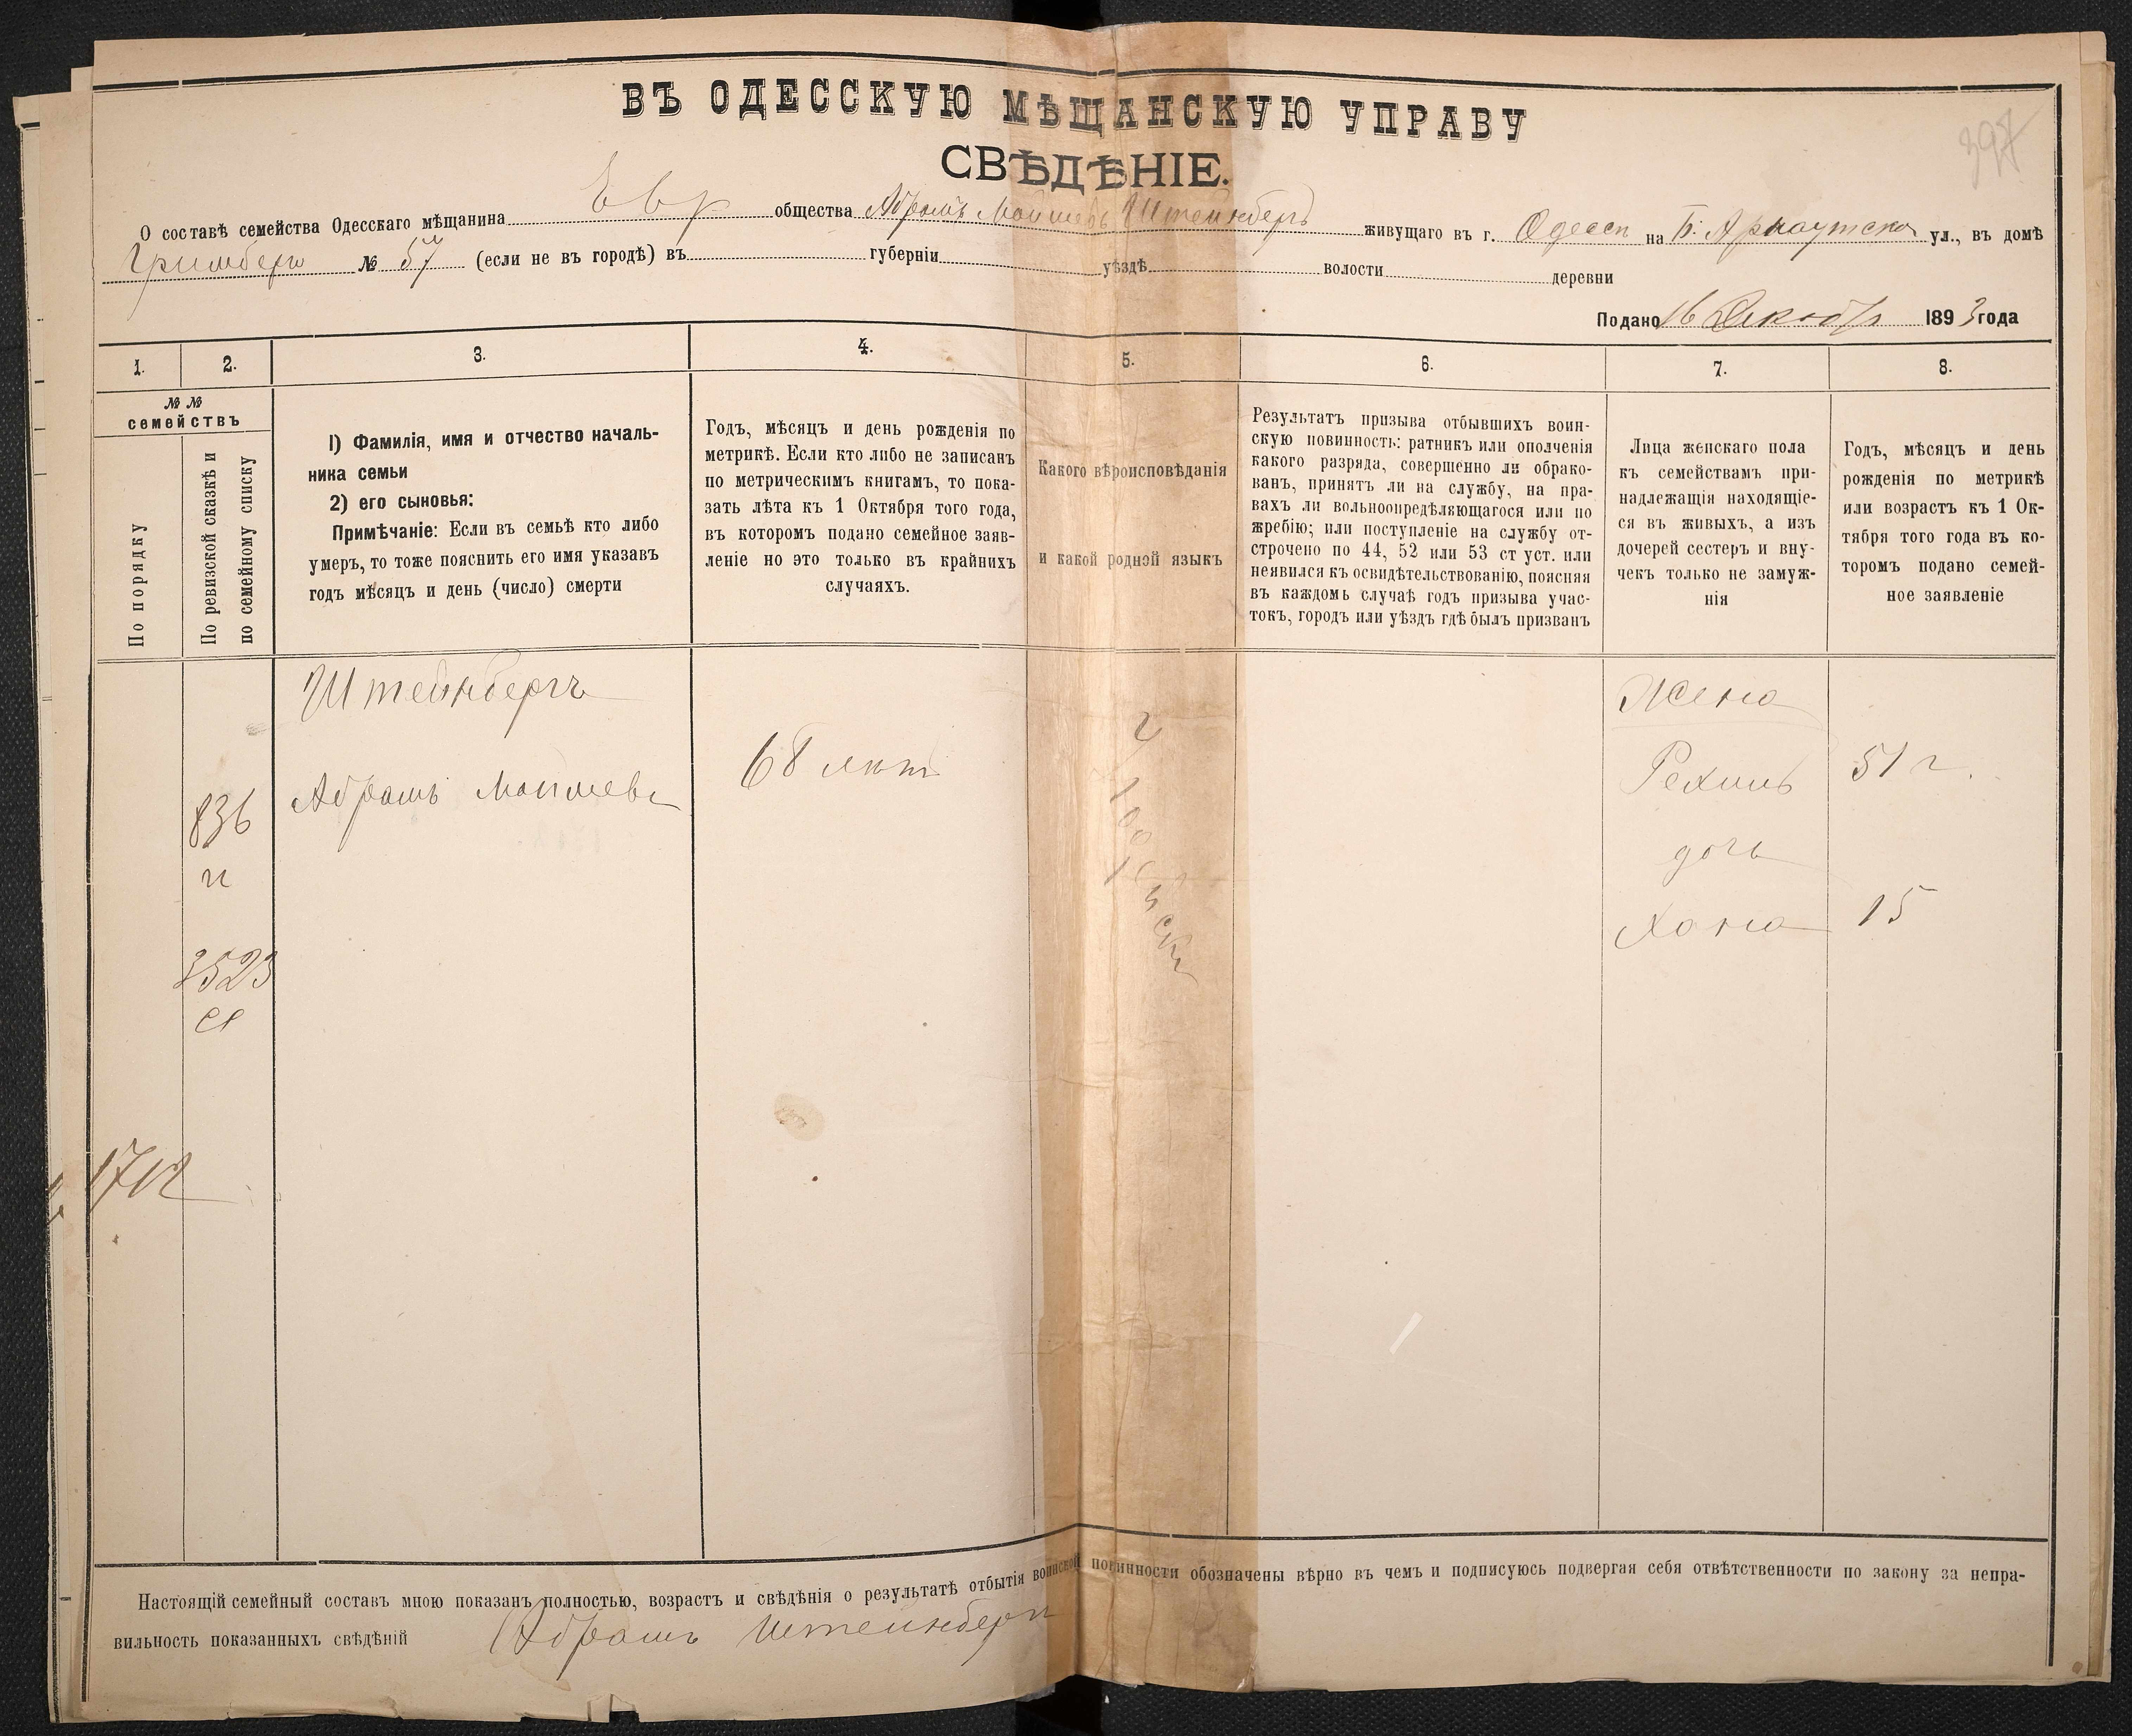 397
ВЪ ОДЕССКУЮ МѢЩАНСКУЮ УПРАВУ
СВѢДѢНІЕ.
О составѣ семейства Одесскаго мѣщанина Евр общества Абрамъ Мошиевъ Штейнбергъ живущаго въ г. Одесси на Б. Арнаутско ул., въ домѣ
Гримберга № 57 (если не въ городѣ) въ губерніи уѣздѣ волости деревни
Подано 16 Декабр 1893 года
1. 2. 3. 4. 5. 6. 7. 8.
№ № семействъ
По порядку
По ревизской сказкѣ и
по семейному списку
1) Фамилія, имя и отчество началь-
ника семьи
2) его сыновья:
Примѣчаніе: Если въ семьѣ кто либо
умеръ, то тоже пояснить его имя указавъ
годъ мѣсяцъ и день (число) смерти
Годъ, мѣсяцъ и день рожденія по
метрикѣ. Если кто либо не записанъ
по метрическимъ книгамъ, то пока-
зать лѣта къ 1 Октября того года,
въ которомъ подано семейное заяв-
леніе но это только въ крайнихъ
случаяхъ.
Какого вѣроисповѣданія
и какой родной языкъ
Результатъ призыва отбывшихъ воин-
скую повинность: ратникъ или ополченія
какого разряда, совершенно ли обрако-
ванъ, принятъ ли на службу, на пра-
вахъ ли вольноопредѣляющагося или по
жребію; или поступленіе на службу от-
строчено по 44, 52 или 53 ст уст. или
неявился къ освидѣтельствованію, поясняя
въ каждомъ случаѣ годъ призыва учас-
токъ, городъ или уѣздъ гдѣ былъ призванъ
Лица женскаго пола
къ семействамъ при-
надлежащія находящіе-
ся въ живыхъ, а изъ
дочерей сестеръ и вну-
чекъ только не замуж-
нія
Годъ, мѣсяцъ и день
рожденія по метрикѣ
или возрастъ къ 1 Ок-
тября того года въ ко-
торомъ подано семей-
ное заявленіе
Штейнбергъ
Абрамъ Мошиевъ
68 лѣт
836
3523
Жена
Рехиль 51 г.
дочь
Хана 15
1712
Настоящій семейный составъ мною показанъ полностью, возрастъ и свѣдѣнія о результатѣ отбытія воинской повинности обозначены вѣрно въ чемъ и подписуюсь подвергая себя отвѣтственности по закону за непра-
вильность показанныхъ свѣдѣній Абрамъ Штейнберг